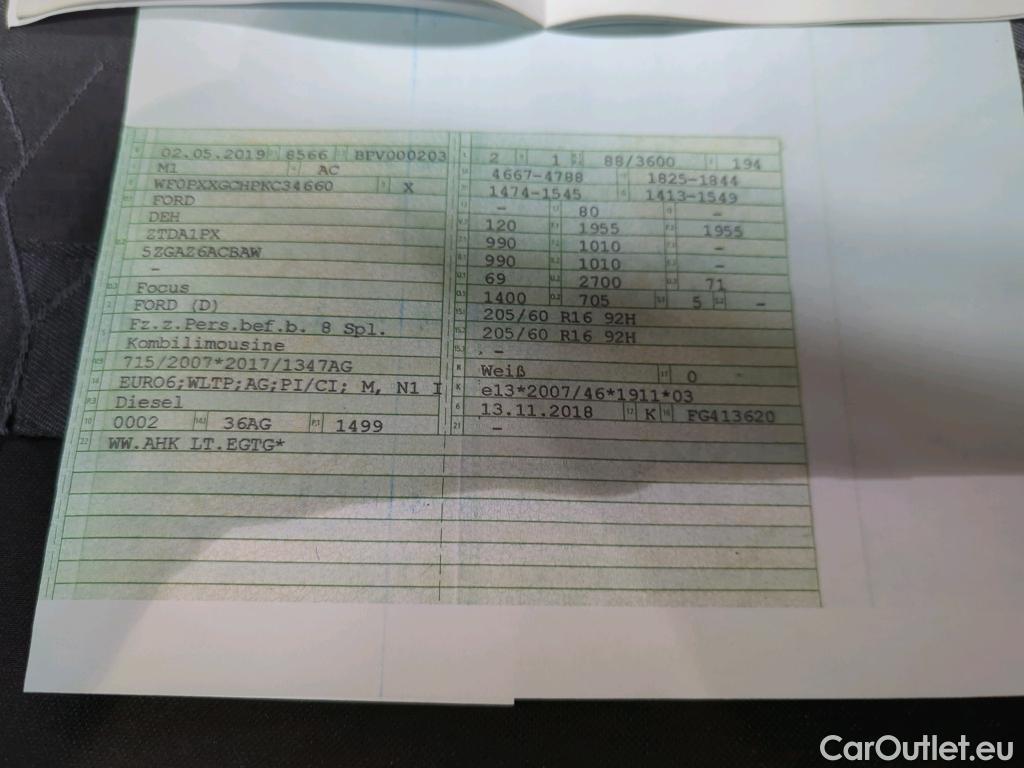 02.05.2019 8566 BFV000203
M1 AC
WF0PXXGCHPKC34660 X
FORD
DEH
ZTDA1PX
5ZGAZ6ACBAW
-
Focus
FORD (D)
Fz.z.Pers.bef.b. 8 Spl.
Kombilimousine
715/2007*2017/1347AG
EURO6;WLTP;AG;PI/CI; M, N1 I
Diesel
0002 36AG 1499
WW.AHK LT.EGTG*
2 1 88/3600 194
4667-4788 1825-1844
1474-1545 1413-1549
- 80 -
120 1955 1955
990 1010 -
990 1010 -
69 2700 71
1400 705 5 -
205/60 R16 92H
205/60 R16 92H
-
Weiß 0 -
e13*2007/46*1911*03
13.11.2018 K FG413620
-
CarOutlet.eu